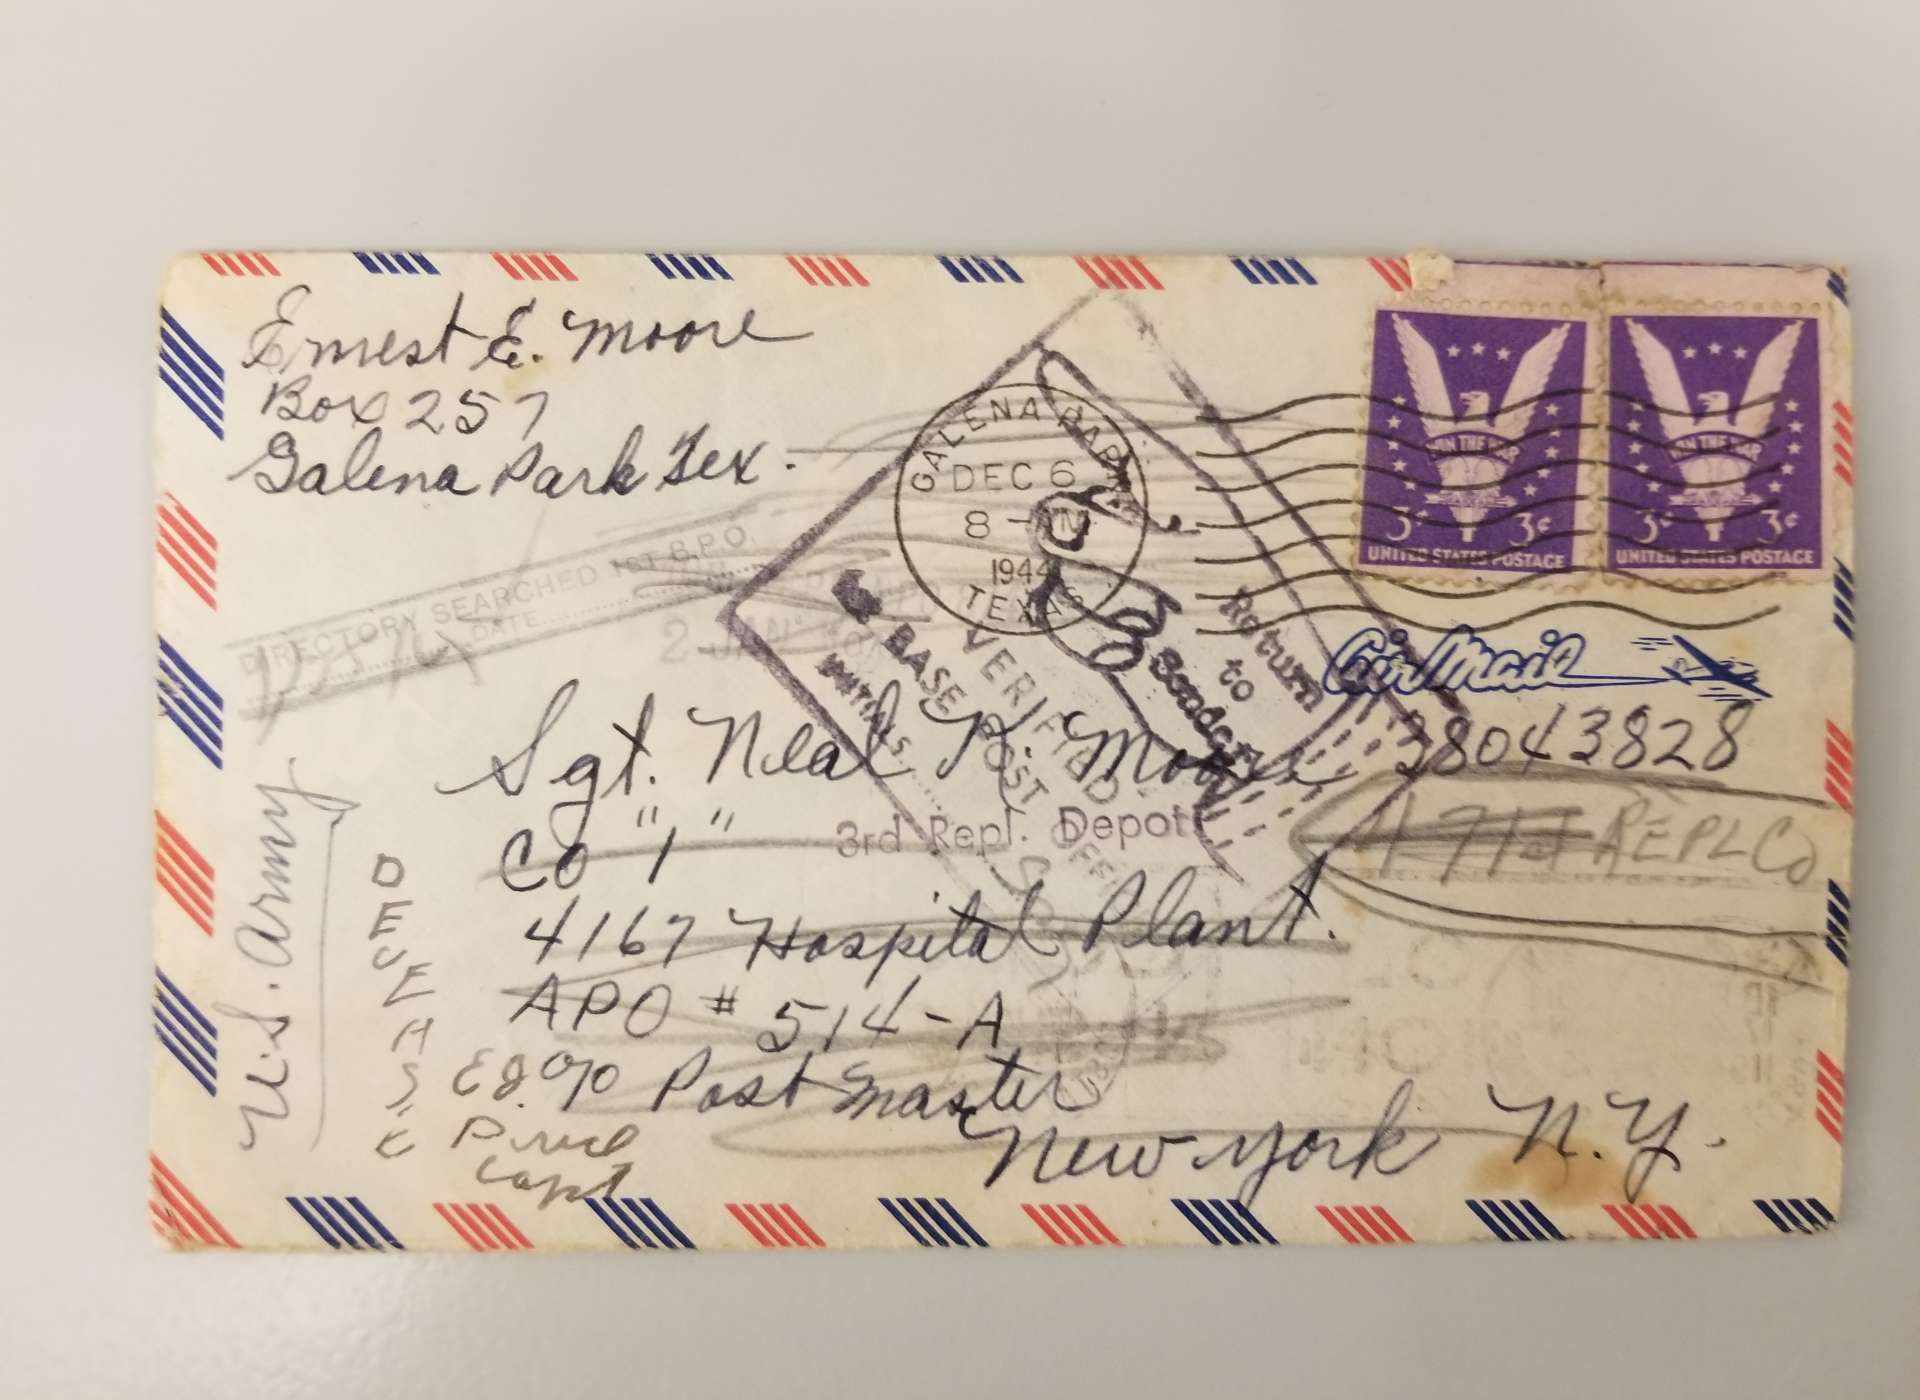 Ernest E. Moore
Box 257
Galena Park Tex.
GALENA PARK
DEC 6
8 - PM
1944
TEXAS
WIN THE WAR
3¢ 3¢
UNITED STATES POSTAGE
WIN THE WAR
3¢ 3¢
UNITED STATES POSTAGE
DIRECTORY SEARCHED 1st B.P.O.
DATE
2 JAN
Return
to
Sender
VERIFIED
BASE POST OFFICE
INITIALS
Air Mail
Sgt. Neal K. Moore 38043828
Co "1"
3rd Repl. Depot
REPL Co
4167 Hospital Plant.
APO # 514-A
c/o Post Master
New York N.Y.
U.S. Army
DECEASE
Capt